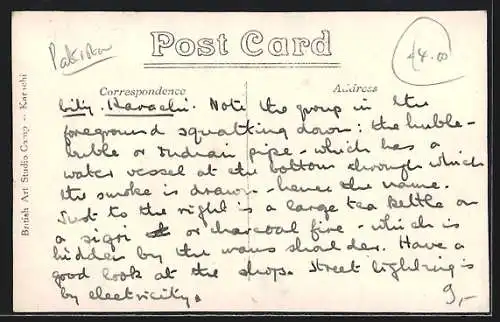 Pakistan
Post Card
£4.00
Correspondence
Address
City. Karachi. Note the group in the
foreground squatting down: the hubble-
bubble or Indian pipe - which has a
water vessel at the bottom through which
the smoke is drawn - hence the name.
Just to the right is a large tea kettle on
a sigri or charcoal fire - which is
hidden by the mans shoulder. Have a
good look at the shop. Street lighting is
by electricity.
9,-
British Art Studio Camp -- Karachi